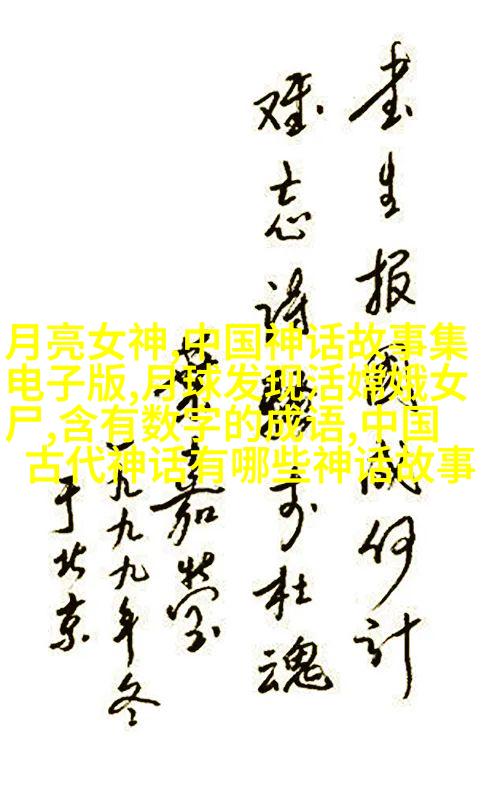 書生报國成何计
难忘诗骚李杜魂
葉嘉莹
一九九九年冬
于北京
月亮女神,中国神话故事集
电子版,月球发现活嫦娥女
尸,含有数字的成语,中国
古代神话有哪些神话故事